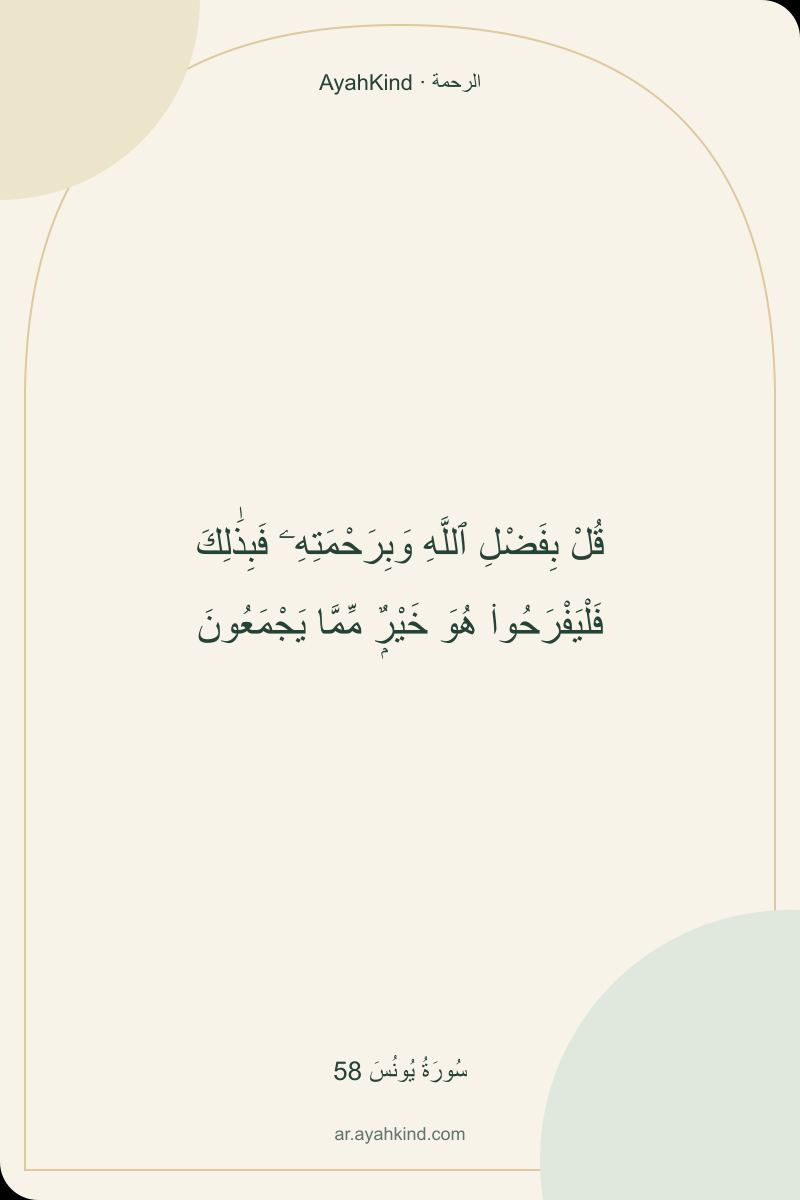 AyahKind · الرحمة
قُلْ بِفَضْلِ ٱللَّهِ وَبِرَحْمَتِهِۦ فَبِذَٰلِكَ
فَلْيَفْرَحُوا۟ هُوَ خَيْرٌۭ مِّمَّا يَجْمَعُونَ
سُورَةُ يُونُسَ 58
ar.ayahkind.com